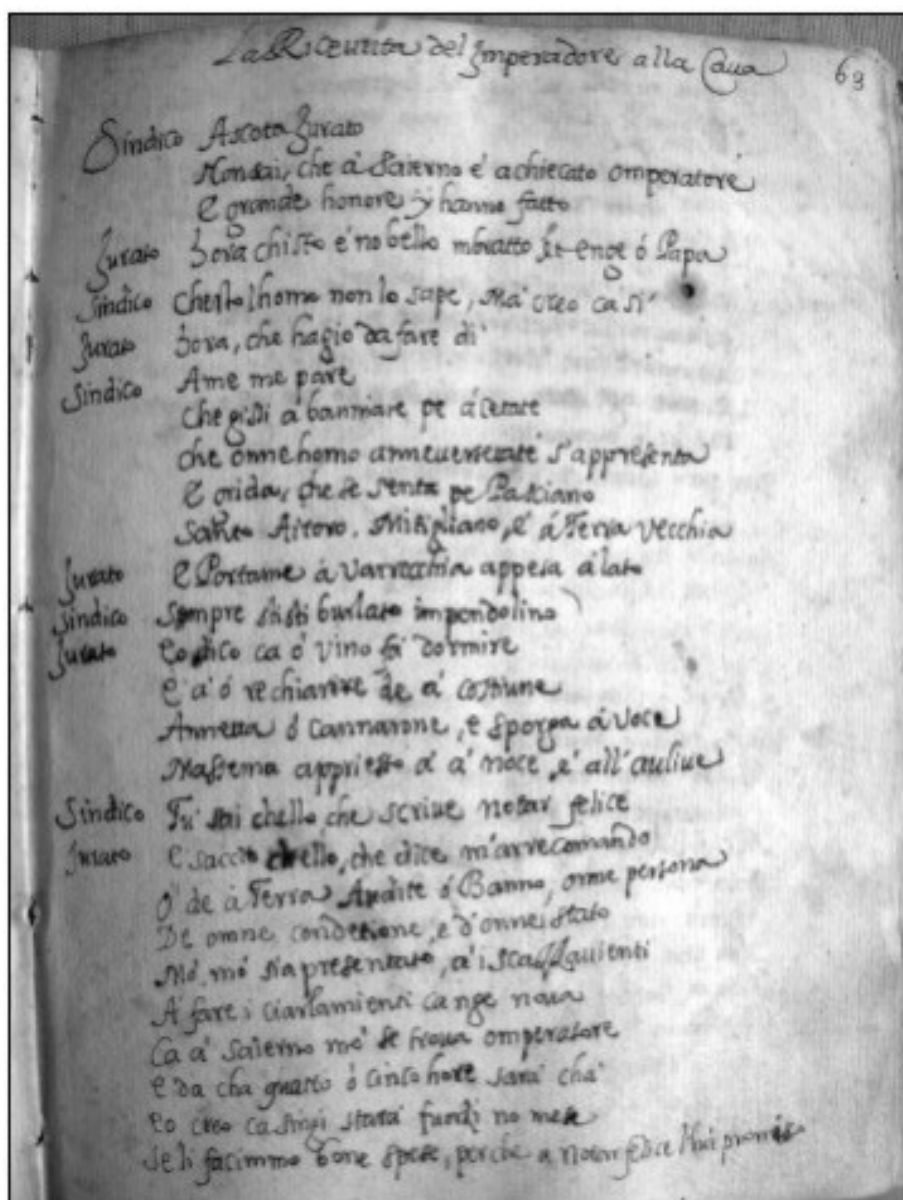 La Riceuuta del Imperadore alla Caua 63
Sindico Ascota Iurato
Non sai, che à Salerno è achiecato omperatore
E grande honore y hanno fatto
Iurato hora chisto è no bello mbratto, enge ó Papa
Sindico Chesto lhomo non lo sape, Ma creo ca si
Iurato hora, che hagio da fare di
Sindico A me me pare
Che gisti à banniare pe à Cetate
che onne homo s'appresenta
E grida, che se senta pe Passiano
Santo Aitoro. Mitigliano, e á Terra Vecchia
Iurato E Portame á Varrecchia appesa á lato
Sindico Sempre sisti burlato impondolino
Iurato Eo dico ca ó vino fá dormire
E á ó rechiarire de á commune
Annetta ó Cannarone, e sporga á Voce
Massema appriesso á á noce, e all'auliue
Sindico Tu sai chello, che scriue notar felice
Iurato E saccio chello, che dice m'arrecomando
O de á Terra Audite ó Banno, onne persona
De omne condetione, e d'onne stato
Mó mó sia presentato, á i
A fare i ciarlamienti ca nge noua
Ca á Salerno mó se troua omperatore
e da cha quatto ó cinco hore sará cha
Eo creo ca stará no mese
Se li facimmo bone spese, perche a Notar felice l'hai promiso